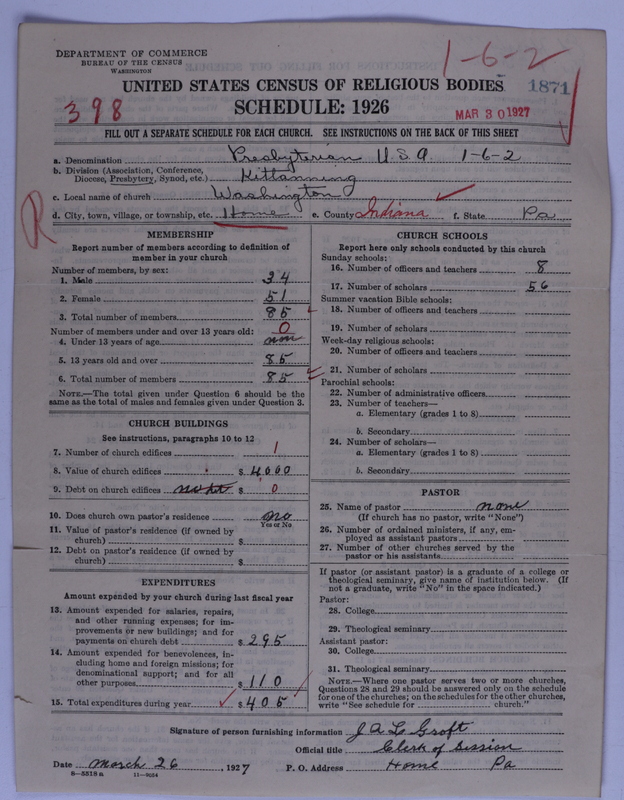 DEPARTMENT OF COMMERCE
BUREAU OF THE CENSUS
WASHINGTON
1-6-2
UNITED STATES CENSUS OF RELIGIOUS BODIES
1871
398
SCHEDULE: 1926
MAR 30 1927
FILL OUT A SEPARATE SCHEDULE FOR EACH CHURCH. SEE INSTRUCTIONS ON THE BACK OF THIS SHEET
a. Denomination Presbyterian U.S.A. 1-6-2
b. Division (Association, Conference, Diocese, Presbytery, Synod, etc.) Kittanning
c. Local name of church Washington
d. City, town, village, or township, etc. Home e. County Indiana f. State Pa
R
MEMBERSHIP
Report number of members according to definition of
member in your church
Number of members, by sex:
1. Male 34
2. Female 51
3. Total number of members 85
Number of members under and over 13 years old: 0
4. Under 13 years of age non
5. 13 years old and over 85
6. Total number of members 85
NOTE.—The total given under Question 6 should be
same as the total of males and females given under Question 3.
CHURCH BUILDINGS
See instructions, paragraphs 10 to 12
7. Number of church edifices 1
8. Value of church edifices $ 4000
9. Debt on church edifices $ 0
10. Does church own pastor's residence no
Yes or No
11. Value of pastor's residence (if owned by
church) $
12. Debt on pastor's residence (if owned by
church) $
EXPENDITURES
Amount expended by your church during last fiscal year
13. Amount expended for salaries, repairs,
and other running expenses; for im-
provements or new buildings; and for
payments on church debt $ 295
14. Amount expended for benevolences, in-
cluding home and foreign missions; for
denominational support; and for all
other purposes $ 110
15. Total expenditures during year $ 405
CHURCH SCHOOLS
Report here only schools conducted by this church
Sunday schools:
16. Number of officers and teachers 8
17. Number of scholars 56
Summer vacation Bible schools:
18. Number of officers and teachers
19. Number of scholars
Week-day religious schools:
20. Number of officers and teachers
21. Number of scholars
Parochial schools:
22. Number of administrative officers
23. Number of teachers—
a. Elementary (grades 1 to 8)
b. Secondary
24. Number of scholars—
a. Elementary (grades 1 to 8)
b. Secondary
PASTOR
25. Name of pastor none
(If church has no pastor, write "None")
26. Number of ordained ministers, if any, em-
ployed as assistant pastors
27. Number of other churches served by the
pastor or his assistants
If pastor (or assistant pastor) is a graduate of a college or
theological seminary, give name of institution below. (If
not a graduate, write "No" in the space indicated.)
Pastor:
28. College
29. Theological seminary
Assistant pastor:
30. College
31. Theological seminary
NOTE.—Where one pastor serves two or more churches,
Questions 28 and 29 should be answered only on the schedule
for one of the churches; on the schedules for the other churches,
write "See schedule for church."
Signature of person furnishing information J A L Groft
Official title Clerk of Session
Date March 26, 1927 P. O. Address Home Pa
8-5518a 11-9054